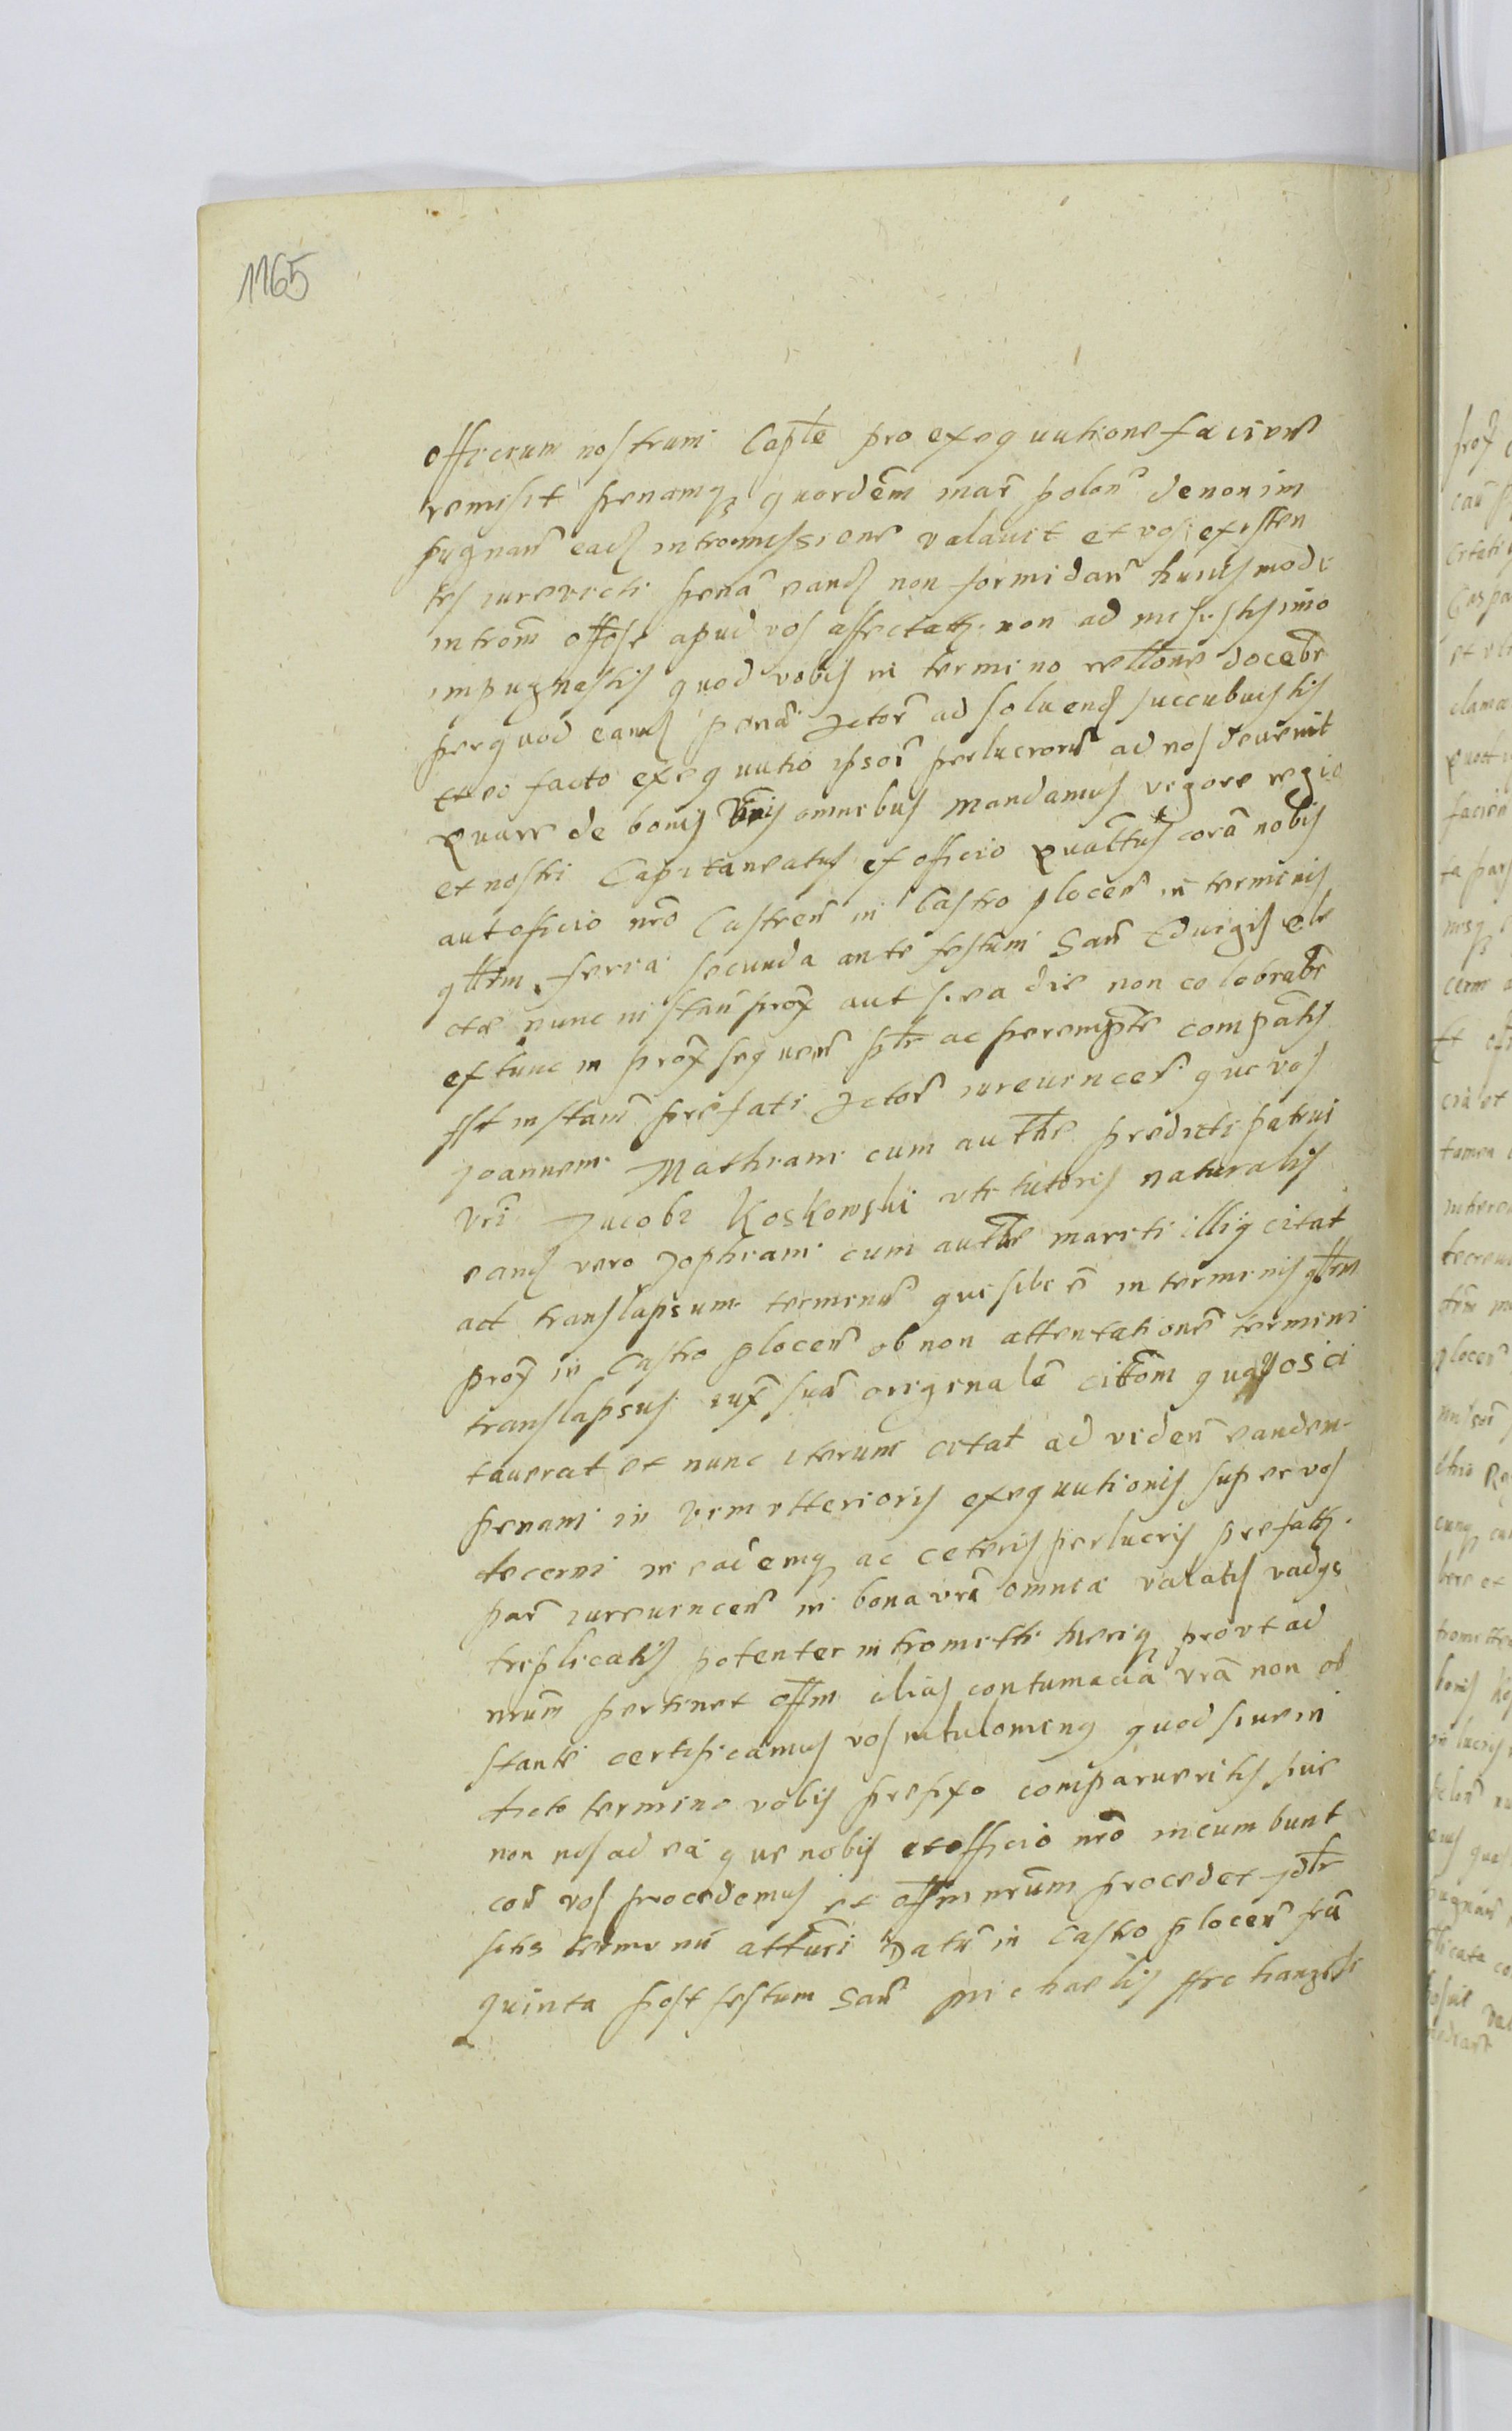 1165
officium nostrum Capte pro exequutione facien
remisit penamq quordem mar polon de non im
pugnan ead intromissione valavit et vos existen
tes iurevicti pena eand non formidan huiusmodi
introm offose apud vos affectat non admisistis imo
impugnastis quod vobis in termino rellone docebr
per quod eand pena actor ad soluend succubuistis
et eo facto exequutio ipsor perlucrorum ad nos devenit
Quare de bonis vris omnibus mandamus vigore regio
et nostri Capitaneatus ex officio Quattus cora nobis
aut officio nro Castren in Castro plocen in terminis
qttem feria secunda ante festum San Eduigis ele
cte nunc instan prox aut si ea die non celebrabr
extunc in prox sequen ptr ac perempte compatis
Ist instam prefati actor iurevincen que vos
Joannem Mathiam cum authte predicti patrui
vri Jacobi Koskowski vti tutoris naturalis
eand vero Zophiam cum authte mariti illiq citat
act translapsum terminum qui sibi e in terminis qttem
prox in Castro plocen ob non attentatione termini
translapsus iux sua originale cittom qua vos ci
tauerat et nunc iterum citat ad viden eandem
penam in vim vlterioris exequutionis super vos
decerni in eademq ac ceteris perlucris prefat
par iurevincen in bona vra omnia valatis vadys
triplicatis potenter intromitti tueriq prout ad
nrum pertinet offm alias contumacia vra non ob
stante certificamus vos nihilominq quod siue in
dicto termino vobis prefixo comparueritis siue
non nos ad ea que nobis et officio nro incumbunt
con vos procedemus et offm nrum procedet idtr
sitis terminu atturi Dat in Castro plocen fra
quinta post festum San Michaelis Archangeli